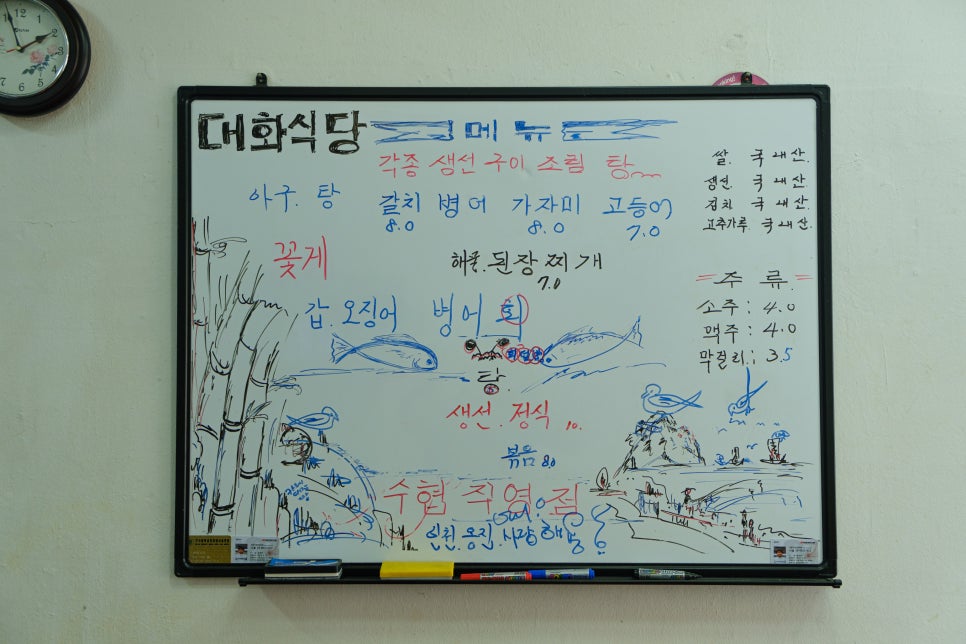 대화식당 메뉴
각종 생선 구이 조림 탕
아구. 탕 갈치 병어 가자미 고등어
8.0 8.0 7.0
쌀. 국내산.
생선. 국내산.
김치 국내산.
고추가루 국내산.
꽃게 해물.된장찌개
7.0
= 주 류. =
소주: 4.0
맥주: 4.0
막걸리: 3.5
갑.오징어 병어 회
탕.
생선.정식 10.
볶음 8.0
수협 직영.점
인천.옹진.